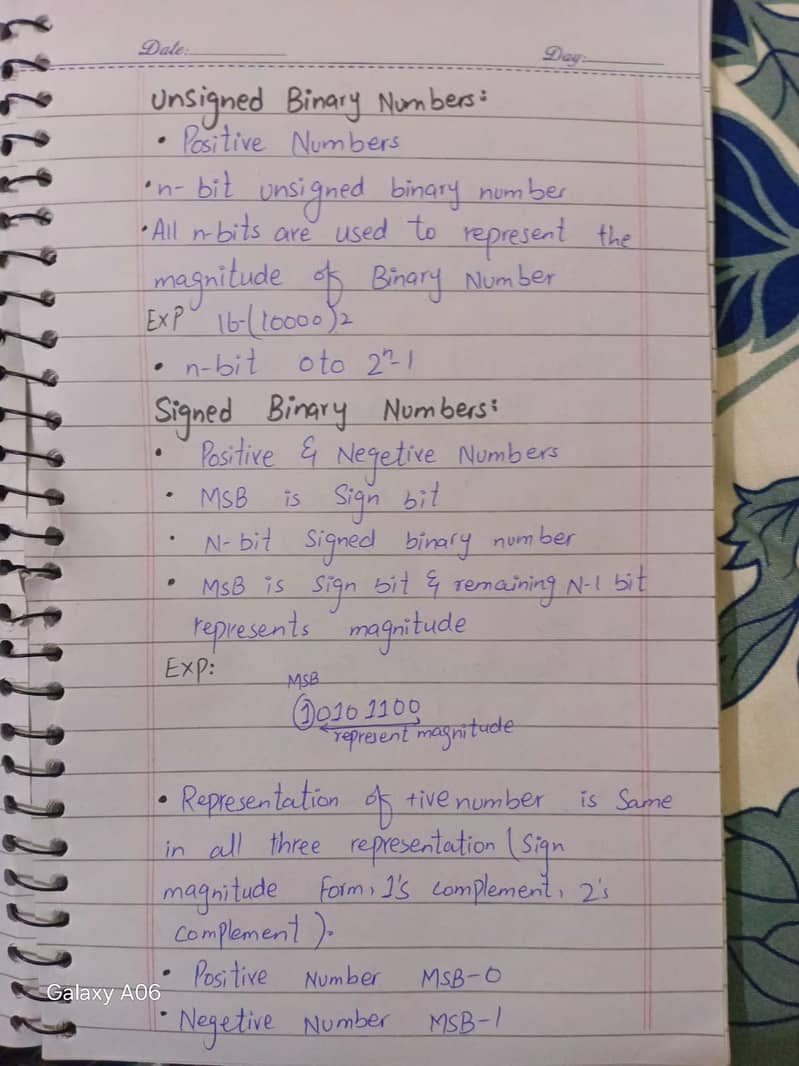 Date:
Day:
Unsigned Binary Numbers:
• Positive Numbers
• n- bit unsigned binary number
• All n-bits are used to represent the
magnitude of Binary Number
Exp 16-(10000)2
• n-bit 0 to 2^n-1
Signed Binary Numbers:
• Positive & Negetive Numbers
• MSB is Sign bit
• N-bit Signed binary number
• MSB is Sign bit & remaining N-1 bit
represents magnitude
Exp:
MSB
10101100
represent magnitude
• Representation of +ive number is Same
in all three representation (Sign
magnitude Form, 1's complement, 2's
complement).
• Positive Number MSB-0
• Negetive Number MSB-1
Galaxy A06